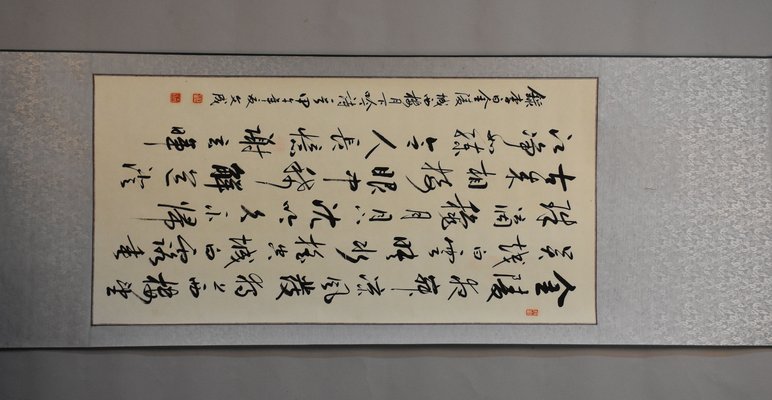 金陵夜寂凉风發独上西楼望
吴越白云映水摇空城白露垂
珠滴秋月月下沈吟久不归
古来相接眼中稀解道澄
江净如练令人长忆谢玄晖
录李白金陵城西楼月下吟诗一首甲午年夏文成